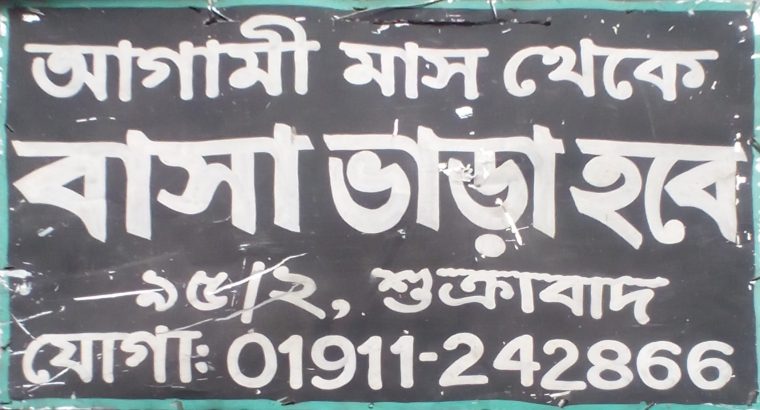 আগামী মাস থেকে
বাসা ভাড়া হবে
৯৫/২, শুক্রাবাদ
যোগাঃ 01911-242866